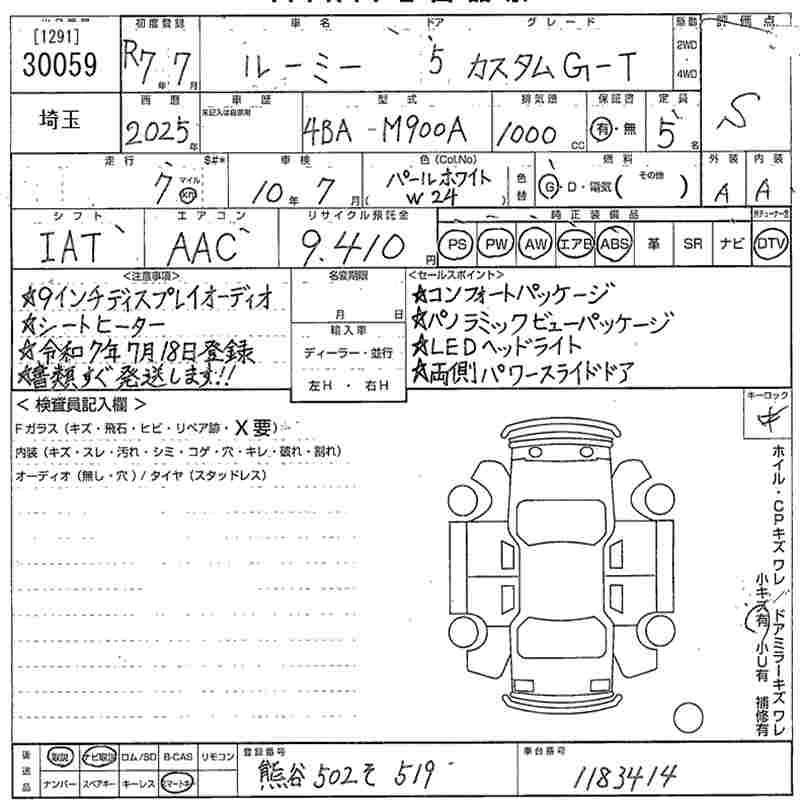 [1291]
30059
初度登録
R7年 7月
車名
ルーミー
ドア
5
グレード
カスタムG-T
駆動
2WD
・
4WD
評価点
S
埼玉
西暦
2025年
車歴
未記入は自家用
型式
4BA-M900A
排気量
1000 CC
保証書
有・無
定員
5名
走行
7 マイル km
S#*
車検
10年 7月
色(Col.No)
パールホワイト
( W24 )
色替
燃料
G・D・電気( その他 )
外装
A
内装
A
シフト
IAT
エアコン
AAC
リサイクル預託金
9.410円
純正装備品
PS PW AW エアB ABS 革 SR ナビ DTV
<注意事項>
☆9インチディスプレイオーディオ
☆シートヒーター
☆令和7年7月18日登録
☆書類すぐ発送します!!
名変期限
月 日
輸入車
ディーラー・並行
左H ・ 右H
<セールスポイント>
☆コンフォートパッケージ
☆パノラミックビューパッケージ
☆LEDヘッドライト
☆両側パワースライドドア
< 検査員記入欄 >
Fガラス(キズ・飛石・ヒビ・リペア跡・X要)
内装(キズ・スレ・汚れ・シミ・コゲ・穴・キレ・破れ・割れ)
オーディオ(無し・穴)/タイヤ(スタッドレス)
キーロック
キ
ホイル・CPキズワレ/ドアミラーキズワレ
小キズ有 小U有 補修有
後送品
取説 ナビ取説 ロム/SD B-CAS リモコン
ナンバー スペアキー キーレス スマートキー
登録番号
熊谷 502 そ 519
車台番号
1183414